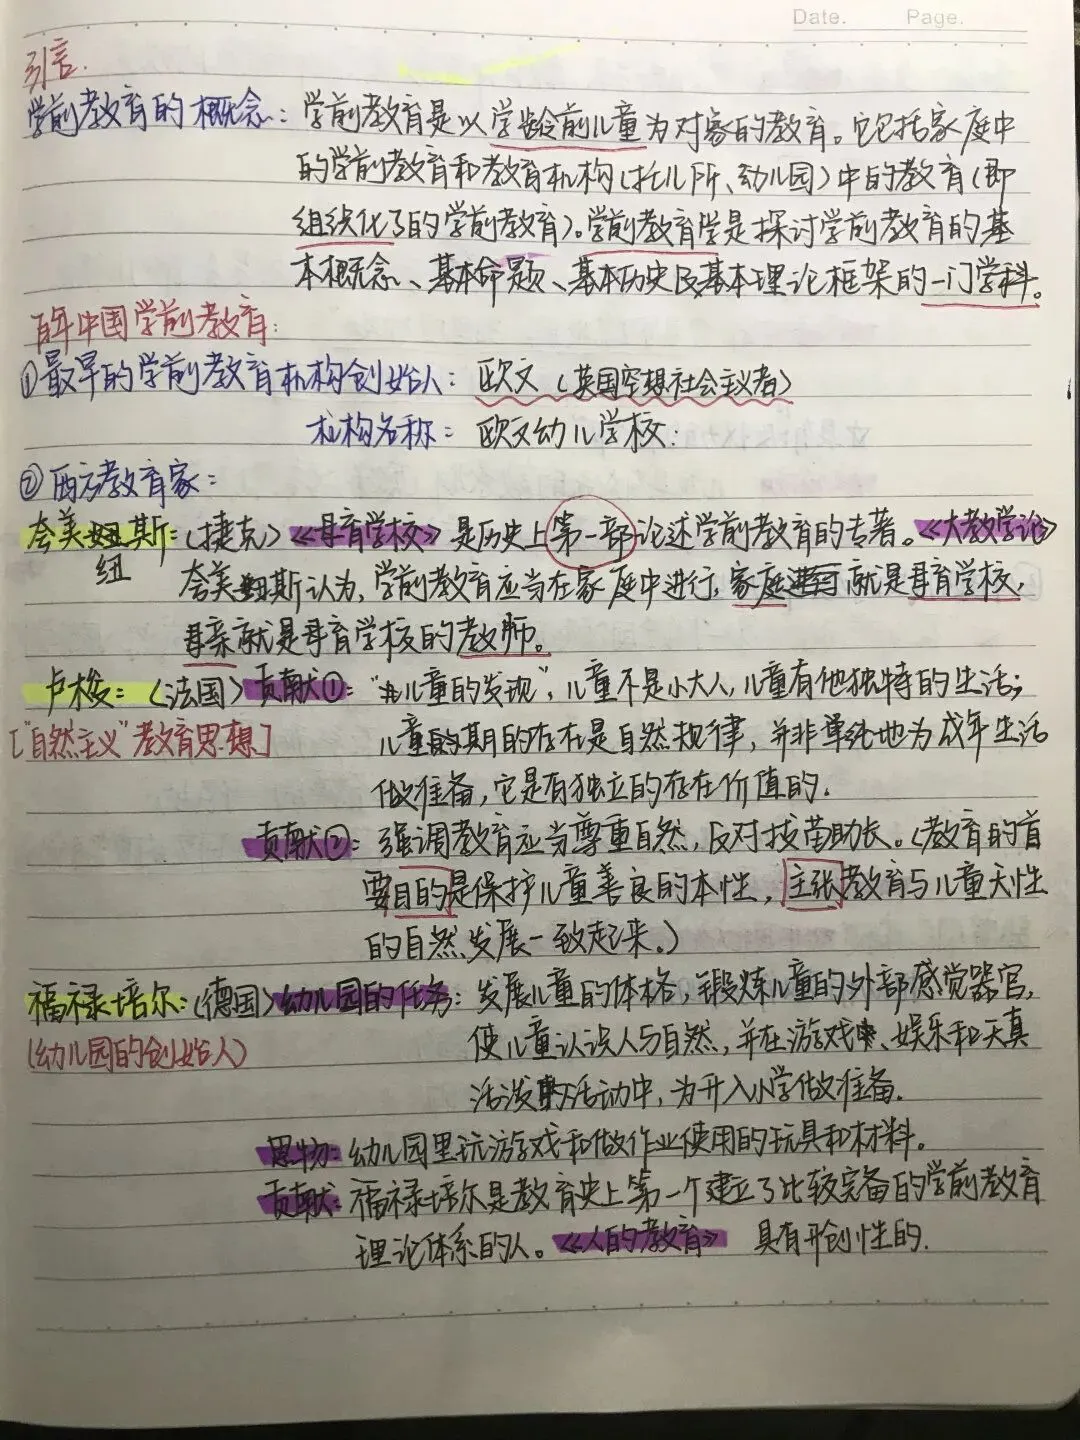 Date. Page.
引言.
学前教育的概念: 学前教育是以学龄前儿童为对象的教育。它包括家庭中
的学前教育和教育机构(托儿所、幼儿园)中的教育(即
组织化了的学前教育)。学前教育学是探讨学前教育的基
本概念、基本命题、基本历史及基本理论框架的一门学科。
百年中国学前教育:
①最早的学前教育机构创始人: 欧文 (英国空想社会主义者)
机构名称: 欧文幼儿学校:
②西方教育家:
夸美纽斯:(捷克)《母育学校》是历史上第一部论述学前教育的专著。《大教学论》
纽
夸美纽斯认为,学前教育应当在家庭中进行,家庭就是母育学校,
母亲就是母育学校的教师。
卢梭:(法国)贡献①: "儿童的发现",儿童不是小大人,儿童有他独特的生活;
["自然主义"教育思想] 儿童期的存在是自然规律,并非单纯地为成年生活
做准备,它是有独立的存在价值的.
贡献②: 强调教育应当尊重自然,反对拔苗助长。(教育的首
要目的是保护儿童善良的本性,主张教育与儿童天性
的自然发展一致起来。)
福禄培尔:(德国)幼儿园的任务: 发展儿童的体格,锻炼儿童的外部感觉器官,
(幼儿园的创始人) 使儿童认识人与自然,并在游戏、娱乐和天真
活泼的活动中,为升入小学做准备.
恩物: 幼儿园里玩游戏和做作业使用的玩具和材料。
贡献: 福禄培尔是教育史上第一个建立了比较完备的学前教育
理论体系的人。《人的教育》 具有开创性的.